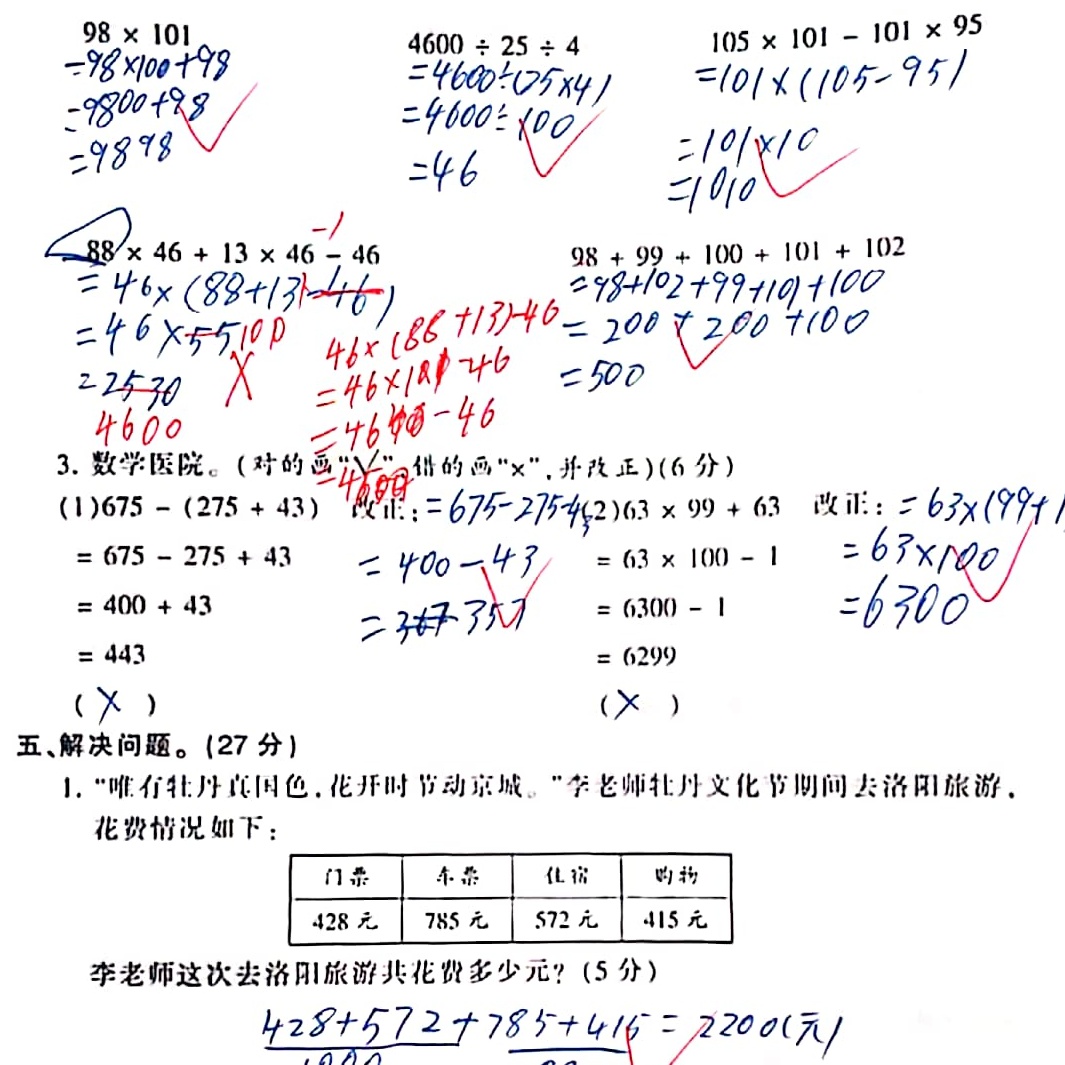 98 × 101
=98×100+98
=9800+98
=9898
4600 ÷ 25 ÷ 4
=4600÷(25×4)
=4600÷100
=46
105 × 101 - 101 × 95
=101×(105-95)
=101×10
=1010
-1
88 × 46 + 13 × 46 - 46
=46×(88+13-46)
=46×55 100
=2530
4600
46×(88+13)-46
=46×101-46
-46
=4600
98 + 99 + 100 + 101 + 102
=98+102+99+101+100
=200+200+100
=500
3. 数学医院。(对的画“√”,错的画“×”,并改正)(6 分)
(1)675 - (275 + 43) 改正:=675-275-43
= 675 - 275 + 43
=400-43
= 400 + 43
=357
= 443
( × )
(2)63 × 99 + 63 改正:=63×(99+1
= 63 × 100 - 1
=63×100
= 6300 - 1
=6300
= 6299
( × )
五、解决问题。(27 分)
1. “唯有牡丹真国色,花开时节动京城。”李老师牡丹文化节期间去洛阳旅游,
花费情况如下:
门票 车票 住宿 购物
428 元 785 元 572 元 415 元
李老师这次去洛阳旅游共花费多少元?(5 分)
428+572+785+415=2200(元)